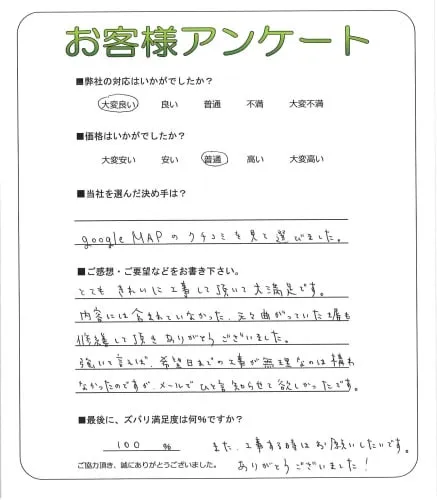 お客様アンケート
■弊社の対応はいかがでしたか？
大変良い 良い 普通 不満 大変不満
■価格はいかがでしたか？
大変安い 安い 普通 高い 大変高い
■当社を選んだ決め手は？
google MAPのクチコミを見て選びました。
■ご感想・ご要望などをお書き下さい。
とてもきれいに工事して頂いて大満足です。
内容には含まれていなかった、元々曲がっていた塀も
修繕して頂きありがとうございました。
強いて言えば、希望日までの工事が無理なのは構わ
なかったのですが、メールでひと言知らせて欲しかったです。
■最後に、ズバリ満足度は何％ですか？
100 % また、工事する時はお願いしたいです。
ご協力頂き、誠にありがとうございました。 ありがとうございました！